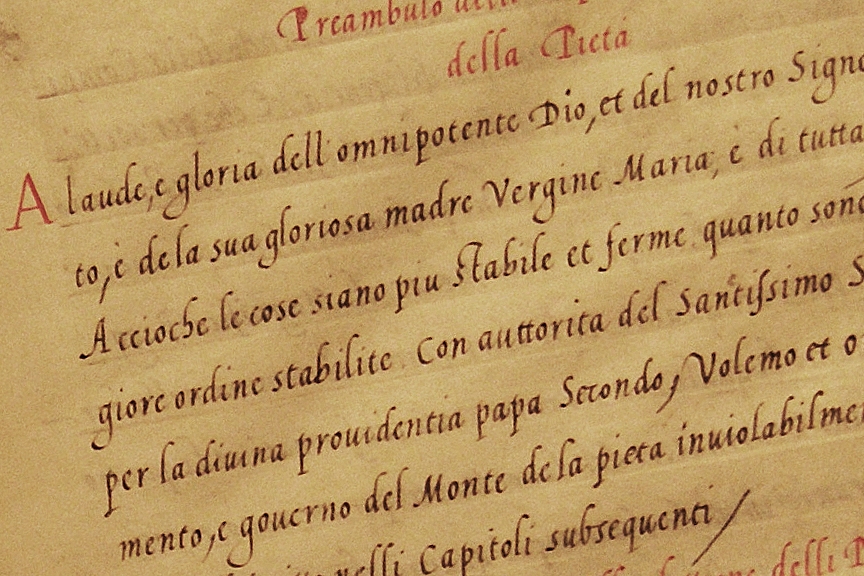 Preambulo
della Pietà
A laude, e gloria dell'omnipotente Dio, et del nostro
to, è de la sua gloriosa madre Vergine Maria, è di tutta
Accioche le cose siano piu stabile et ferme quanto
giore ordine stabilite. Con auttorita del Santissimo
per la diuina prouidentia papa Secondo, Volemo et
mento, e gouerno del Monte de la pieta
Capitoli subsequenti /
delli